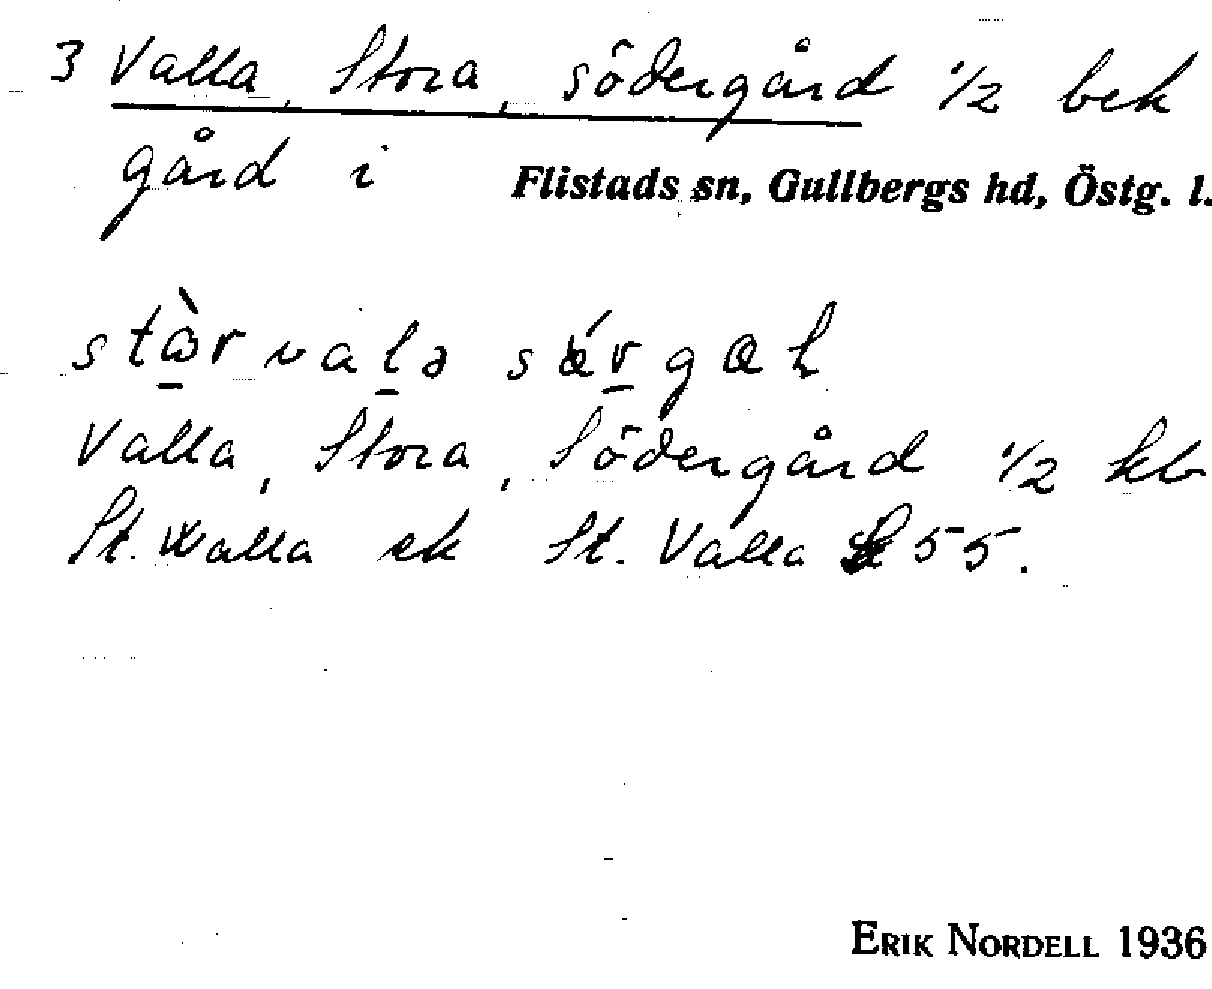 3 Valla, Stora, södergård 1/2 bek
gård i Flistads sn, Gullbergs hd, Östg. l.
Valla, Stora, Södergård 1/2 kb
St. Walla ek St. Valla 55.
ERIK NORDELL 1936